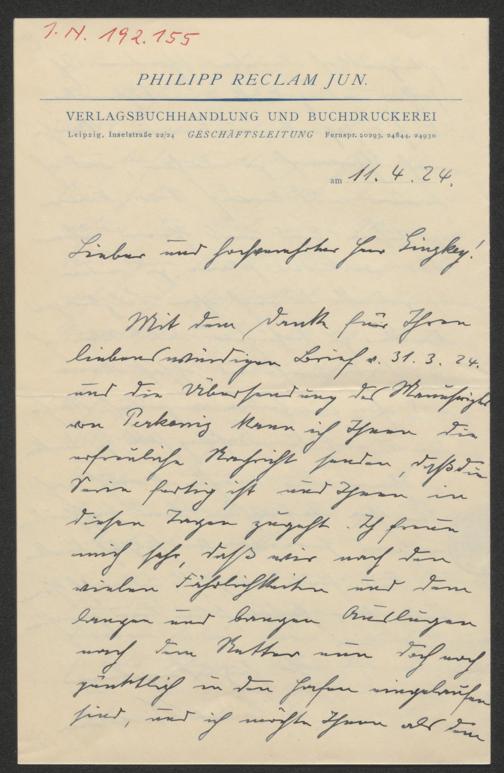 I.N. 192.155
PHILIPP RECLAM JUN.
VERLAGSBUCHHANDLUNG UND BUCHDRUCKEREI
Leipzig, Inselstraße 22/24 GESCHÄFTSLEITUNG Fernspr. 20293, 24844, 24930
am 11.4.24.
Lieber und hochverehrter Herr Ginzkey!
Mit dem Danke für Ihren
liebenswürdigen Brief v. 31.3.24.
und die Übersendung des Manuskripts
von Perkonig kann ich Ihnen die
erfreuliche Nachricht senden, daß die
Serie fertig ist und Ihnen in
diesen Tagen zugeht. Ich freue
mich sehr, daß wir nach den
vielen Fährlichkeiten und dem
langen und bangen Auslugen
nach dem Retter nun doch noch
pünktlich in den Hafen eingelaufen
sind, und ich möchte Ihnen als dem